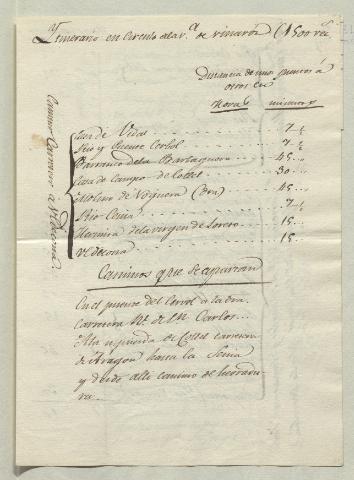 Itinerario en circulo a la v.ª de Vinaroz (1500 vec
Distancia de unos puntos a
otros en
Horas minutos
Camino Carretero a Uldecona
Casa de Vidal 7 ½
Rio y Puente Cerbol 7 ½
Barranco de la Barbaguera 45
Casa de Campo de Collet 30
Molino de Noguera (dra) 45
Rio Cenia 7 ½
Hermita de la virgen de Loreto 15
Uldecona 15
Caminos que se apartan
En el puente del Cervol a la dra.
Carretera Rl. de Sn. Carlos
A la izquierda de Collet carretera
de Aragon hasta la Senia
y desde alli camino de herradu-
ra.